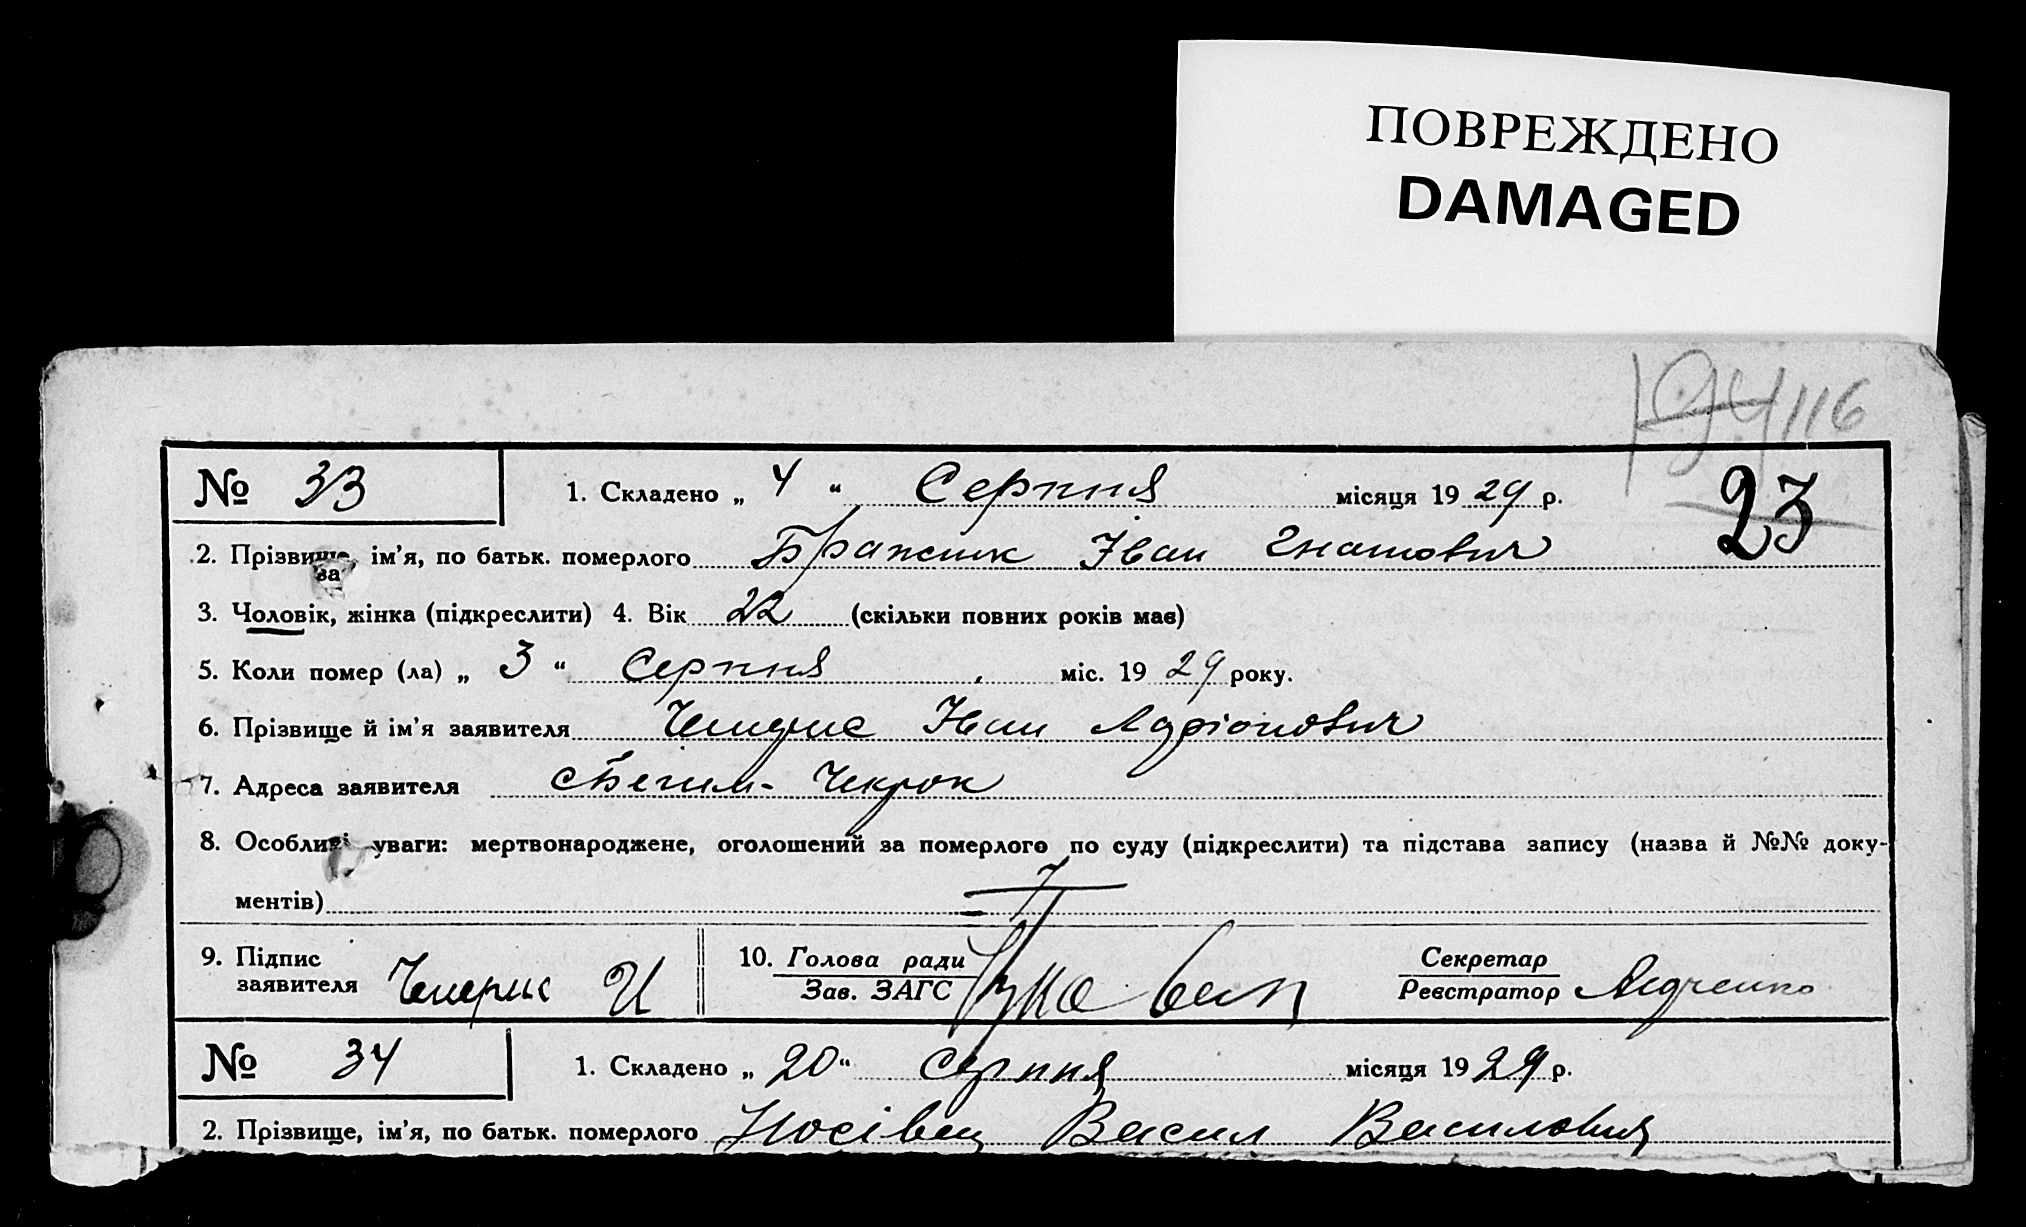 ПОВРЕЖДЕНО
DAMAGED
194 116
23
№ 33 1. Складено „ 4 “ Серпня місяця 1929 р.
2. Прізвище, ім’я, по батьк. померлого Іван Гнатович
за
3. Чоловік, жінка (підкреслити) 4. Вік 22 (скільки повних років має)
5. Коли помер (ла) „ 3 “ Серпня міс. 1929 року.
6. Прізвище й ім’я заявителя Іван Адріонович
7. Адреса заявителя Чекрок
8. Особливі уваги: мертвонароджене, оголошений за померлого по суду (підкреслити) та підстава запису (назва й №№ доку-
ментів)
9. Підпис заявителя 10. Голова ради Зав. ЗАГС Секретар Реєстратор
№ 34 1. Складено „ 20 “ серпня місяця 1929 р.
2. Прізвище, ім’я, по батьк. померлого Носівец Васил Василович